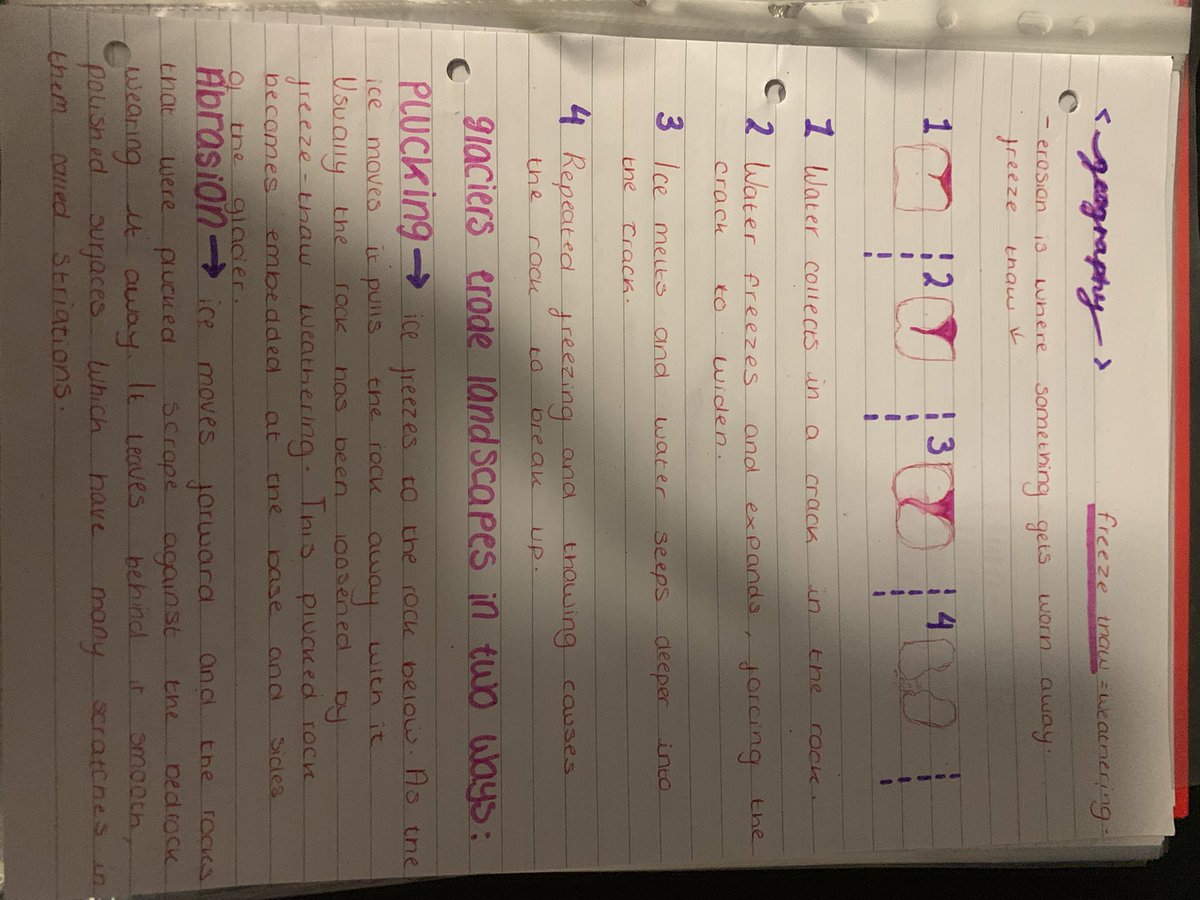 freeze thaw = weathering.
<geography>
- erosion is where something gets worn away.
freeze thaw ↓
1 2 3 4
1 Water collects in a crack in the rock.
2 Water freezes and expands, forcing the
crack to widen.
3 Ice melts and water seeps deeper into
the crack.
4 Repeated freezing and thawing causes
the rock to break up.
glaciers erode landscapes in two ways:
Plucking → ice freezes to the rock below. As the
ice moves it pulls the rock away with it
Usually the rock has been loosened by
freeze-thaw weathering. This plucked rock
becomes embedded at the base and sides
of the glacier.
Abrasion → ice moves forward and the rocks
that were plucked scrape against the bedrock
wearing it away. It leaves behind it smooth,
polished surfaces which have many scratches in
them called striations.